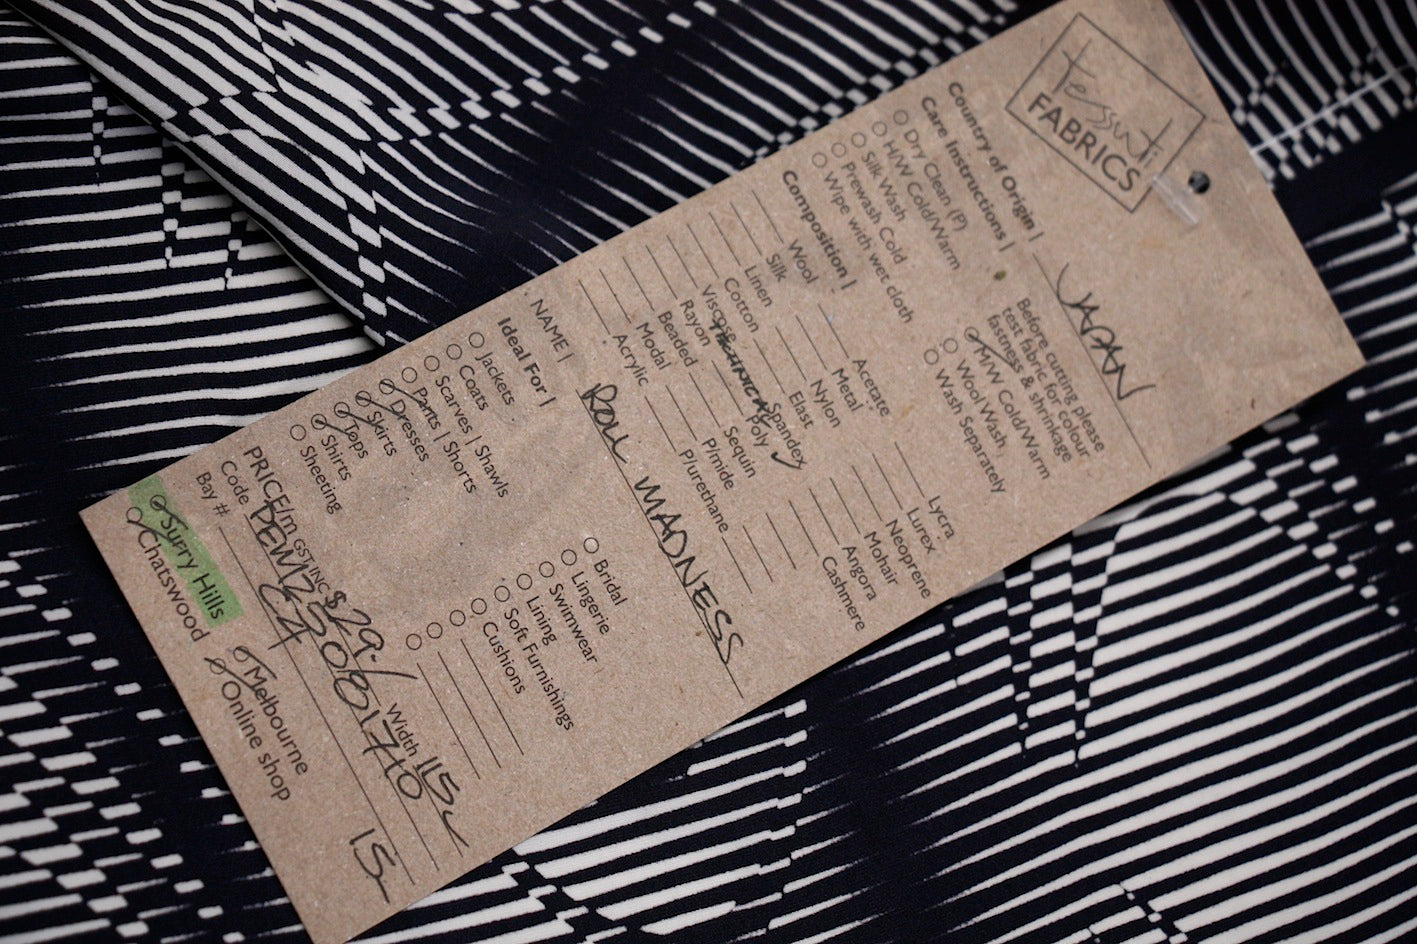 tessuti
FABRICS
Country of Origin | JAPAN
Care Instructions |
Before cutting please
test fabric for colour
fastness & shrinkage
Dry Clean (P)
H/W Cold/Warm
Silk Wash
Prewash Cold
Wipe with wet cloth
M/W Cold/Warm
Wool Wash
Wash Separately
Composition |
Wool
Silk
Linen
Cotton
Viscose
Rayon
Beaded
Modal
Acrylic
Acetate
Metal
Nylon
Elast
Spandex
TECHNICAL Poly ✓
Sequin
P/mide
P/urethane
Lycra
Lurex
Neoprene
Mohair
Angora
Cashmere
NAME | ROLL MADNESS
Ideal For |
Jackets
Coats
Scarves | Shawls
Pants | Shorts
Dresses
Skirts
Tops
Shirts
Sheeting
Bridal
Lingerie
Swimwear
Lining
Soft Furnishings
Cushions
PRICE/m GST INC $29./ Width 115c
Code
Bay # C4 15c
Surry Hills
Chatswood
Melbourne
Online shop